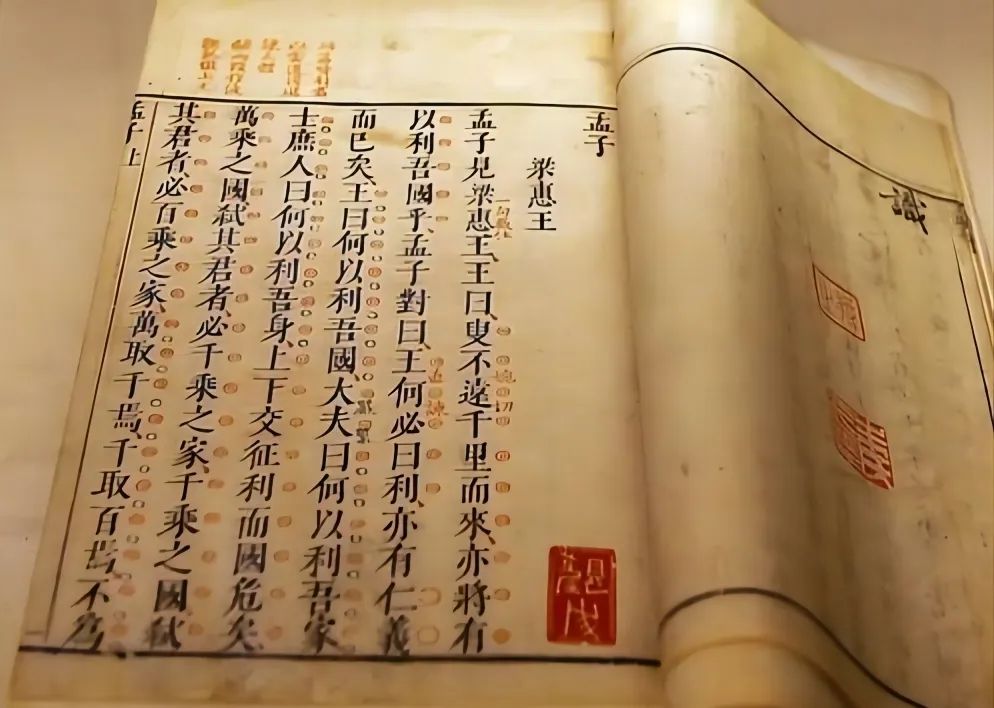 識
孟子
梁惠王
孟子見梁惠王、王曰、叟不遠千里而來、亦將有
以利吾國乎、孟子對曰、王何必曰利、亦有仁義
而已矣、王曰何以利吾國、大夫曰何以利吾家
士庶人曰何以利吾身、上下交征利而國危矣
萬乘之國弑其君者、必千乘之家、千乘之國弑
其君者、必百乘之家、萬取千焉、千取百焉、不爲
孟子上